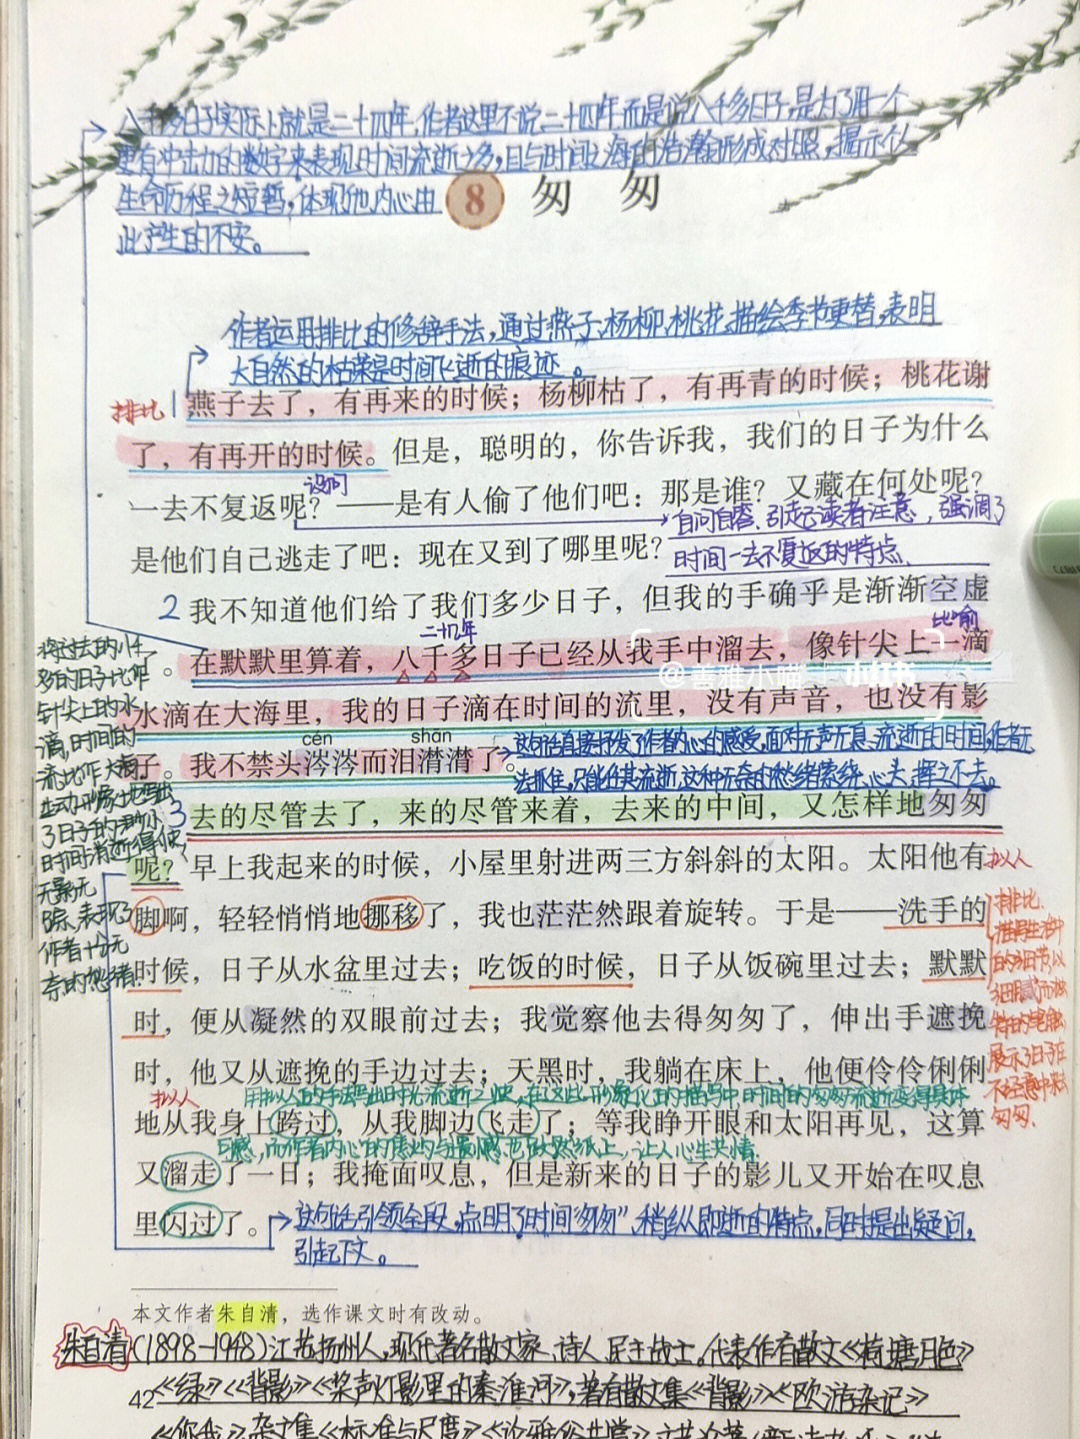 八千多日子实际上就是二十四年,作者这里不说二十四年而是说八千多日子,是为了用一个
更有冲击力的数字来表现时间流逝之多,且与时间之海的浩瀚形成对照,揭示个人
生命历程之短暂,体现他内心由
此产生的不安。
8 匆 匆
作者运用排比的修辞手法,通过燕子、杨柳、桃花、描绘季节更替,表明
大自然的枯荣是时间飞逝的痕迹。
排比
燕子去了，有再来的时候；杨柳枯了，有再青的时候；桃花谢
了，有再开的时候。但是，聪明的，你告诉我，我们的日子为什么
设问
一去不复返呢？——是有人偷了他们吧：那是谁？又藏在何处呢？
自问自答、引起读者注意,强调了
是他们自己逃走了吧：现在又到了哪里呢？
时间一去不复返的特点、
2 我不知道他们给了我们多少日子，但我的手确乎是渐渐空虚
比喻
了。在默默里算着，八千多日子已经从我手中溜去，像针尖上一滴
@善雅小喵 小红书
水滴在大海里，我的日子滴在时间的流里，没有声音，也没有影
cén shān
子。我不禁头涔涔而泪潸潸了。
这句话直接抒发了作者内心的感受,面对无声无息、流逝的时间,作者无
法抓住,只能任其流逝,这种无奈的愁绪萦绕心头,挥之不去。
将过去的八千
多的日子比作
针尖上的水
滴,时间的
流比作大海,
生动形象地写出
了日子的渺小
时间消逝得快,
无影无
踪,表现了
作者十分无
奈的愁绪。
3 去的尽管去了，来的尽管来着，去来的中间，又怎样地匆匆
呢？早上我起来的时候，小屋里射进两三方斜斜的太阳。太阳他有
拟人
脚啊，轻轻悄悄地挪移了，我也茫茫然跟着旋转。于是——洗手的
时候，日子从水盆里过去；吃饭的时候，日子从饭碗里过去；默默
时，便从凝然的双眼前过去；我觉察他去得匆匆了，伸出手遮挽
时，他又从遮挽的手边过去；天黑时，我躺在床上，他便伶伶俐俐
排比、
描写生活中
的细节,以
细腻而独
特的笔触
展示了日子在
不经意中来
匆匆。
拟人
用拟人的手法写出时光流逝之快,在这些形象化的描写中时间的匆匆流逝变得具体
地从我身上跨过，从我脚边飞走了；等我睁开眼和太阳再见，这算
可感,而作者内心的焦灼与遗憾也跃然纸上,让人心生共情。
又溜走了一日；我掩面叹息，但是新来的日子的影儿又开始在叹息
里闪过了。
这句话引领全段,点明了时间“匆匆”、稍纵即逝的特点,同时提出疑问,
引起下文。
本文作者朱自清，选作课文时有改动。
朱自清(1898-1948)江苏扬州人,现代著名散文家、诗人、民主战士。代表作有散文《荷塘月色》
《绿》《背影》《桨声灯影里的秦淮河》,著有散文集《背影》《欧游杂记》
42
《你我》,杂文集《标准与尺度》《论雅俗共赏》